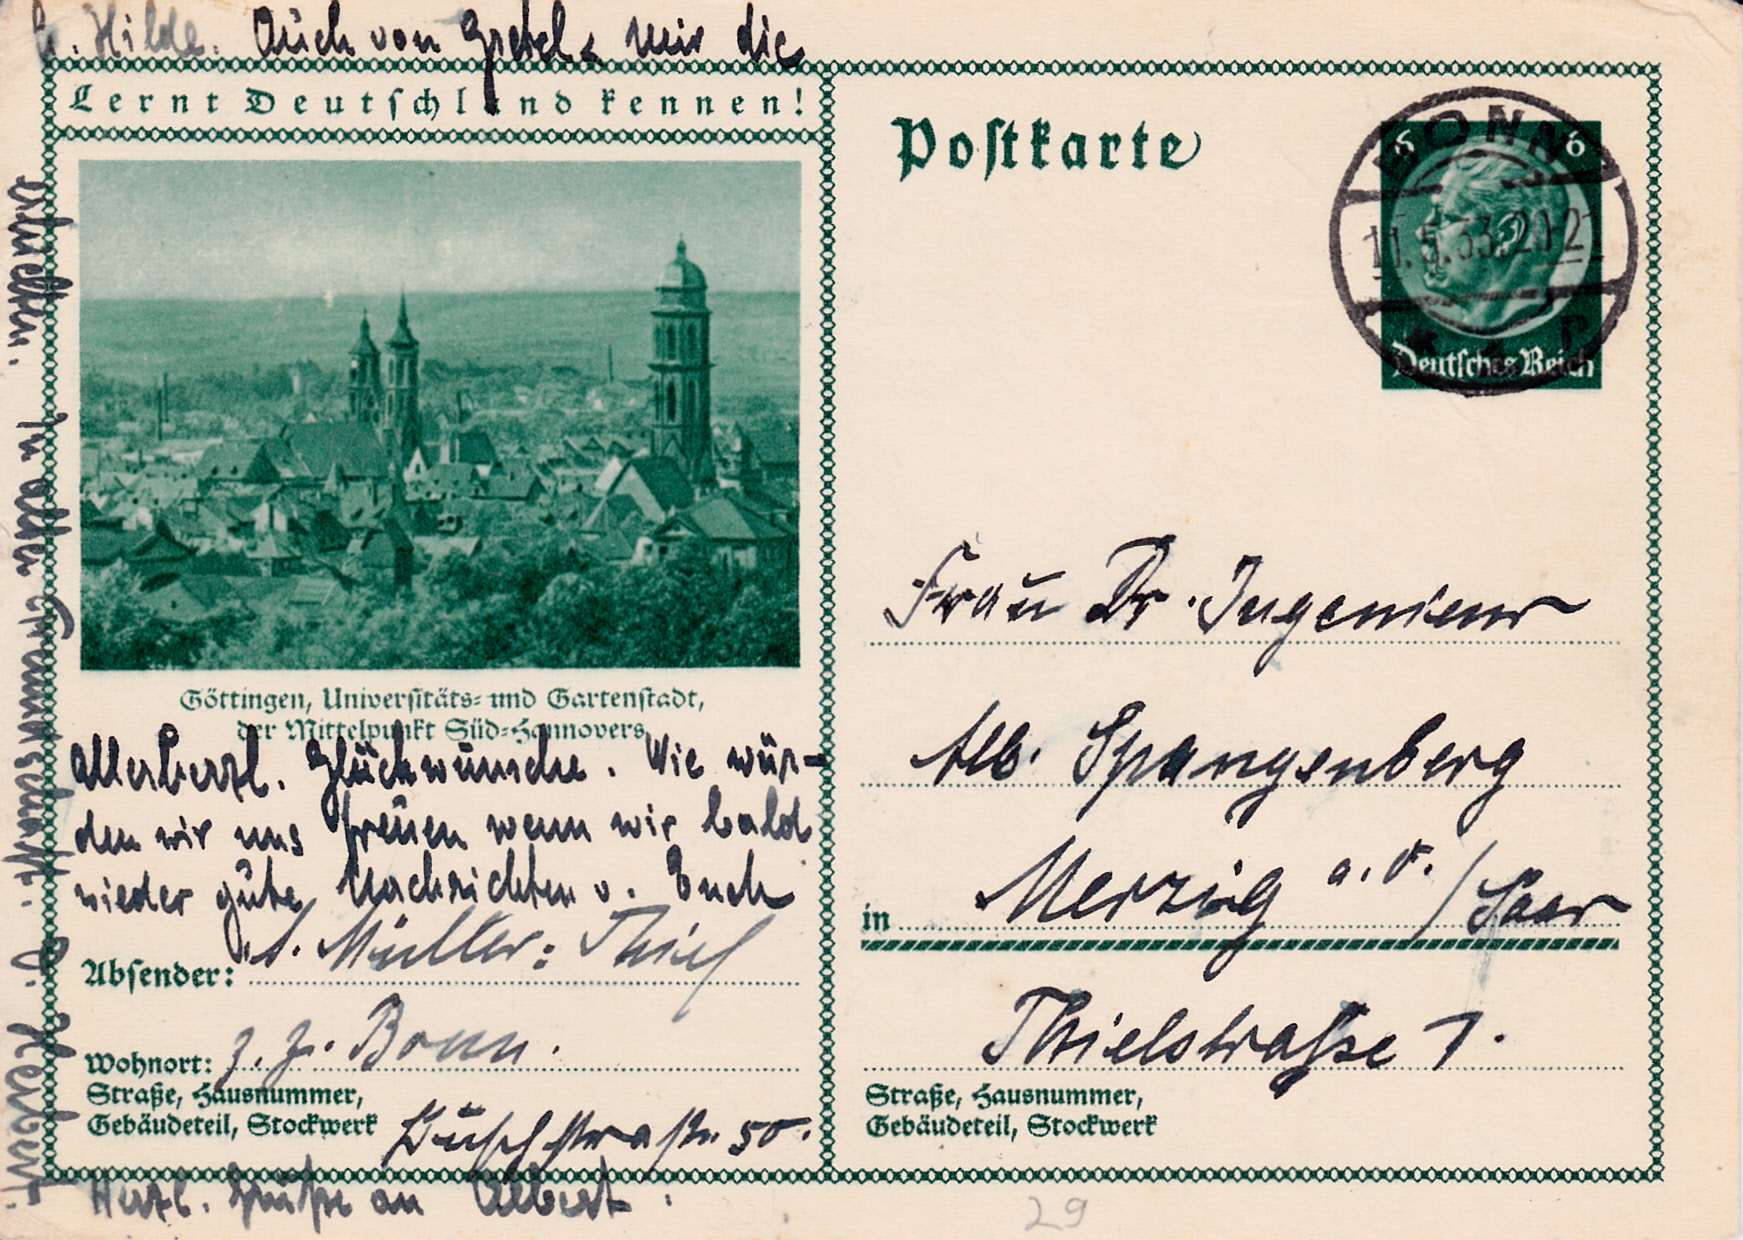 Hilde. Auch von Gretel & mir die
Lernt Deutschland kennen!
Göttingen, Universitäts- und Gartenstadt,
der Mittelpunkt Süd-Hannovers
allerherzl. Glückwünsche. Wie wür-
den wir uns freuen wenn wir bald
wieder gute Nachrichten v. Euch
Absender: A. Müller-Thiel
Wohnort: z. Zt. Bonn.
Straße, Hausnummer,
Gebäudeteil, Stockwerk
straße 50.
Herzl. Grüße an Albert.
erhielten. In alter Freundschaft. D. Herbert.
Postkarte
BONN
11.5.33.20-21
6 6
Deutsches Reich
Frau Dr. Ingenieur
Alb. Spangenberg
in Merzig a. d. / Saar
Thielstraße 1.
Straße, Hausnummer,
Gebäudeteil, Stockwerk
29